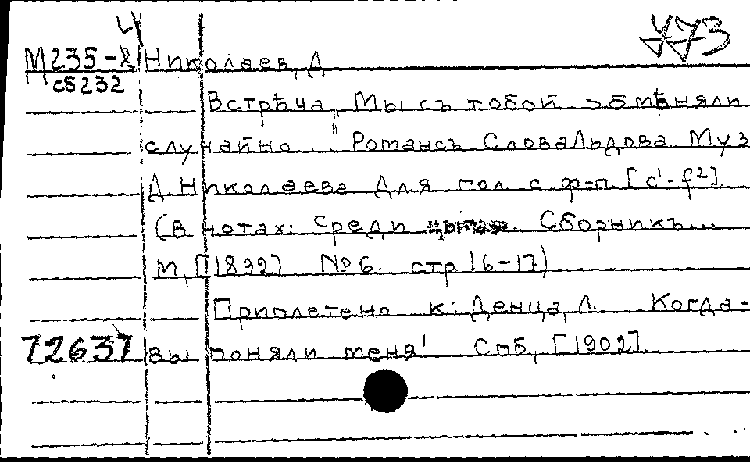 473
М235-8 Николаев, Д
с5232
Встрѣча „Мы съ тобой обмѣняли
случайно..." Романсъ Слова Льдова Муз
Д Николаева Для гол с ф-п [c¹-f²]
(В нотах: Среди Сборникъ...
М, [1892] № 6 стр 16-17)
Приплетено к: Денца, Л. Когда-
72637 вы поняли меня! Спб, [1902]